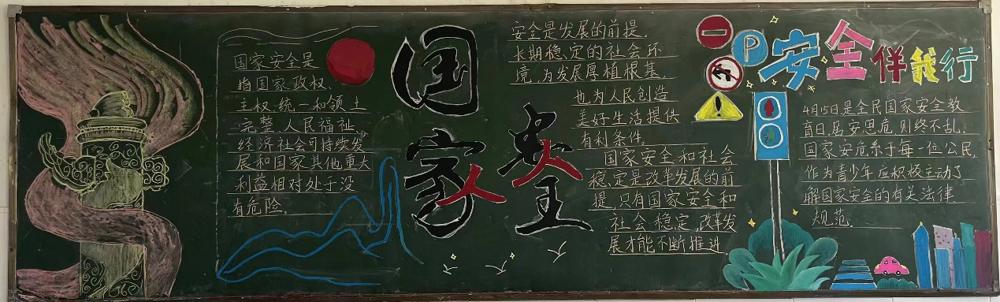 国家安全是
指国家政权、
主权、统一和领土
完整、人民福祉、
经济社会可持续发
展和国家其他重大
利益相对处于没
有危险。
国家安全
安全是发展的前提。
长期稳定的社会环
境,为发展厚植根基,
也为人民创造
美好生活提供
有利条件。
国家安全和社会
稳定是改革发展的前
提,只有国家安全和
社会稳定,改革发
展才能不断推进
P
安全伴我行
4月15日是全民国家安全教
育日,居安思危则终不乱,
国家安危系于每一位公民,
作为青少年应积极主动了
解国家安全的有关法律
规范。